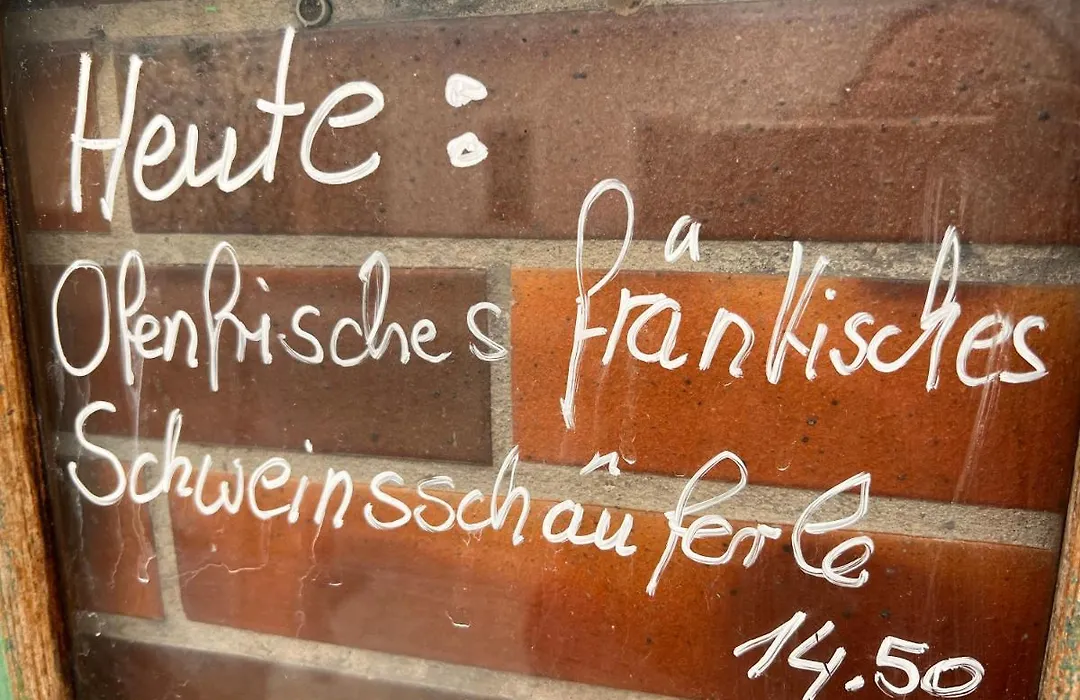 Heute:
Ofenfrisches fränkisches
Schweinsschäuferle
14.50